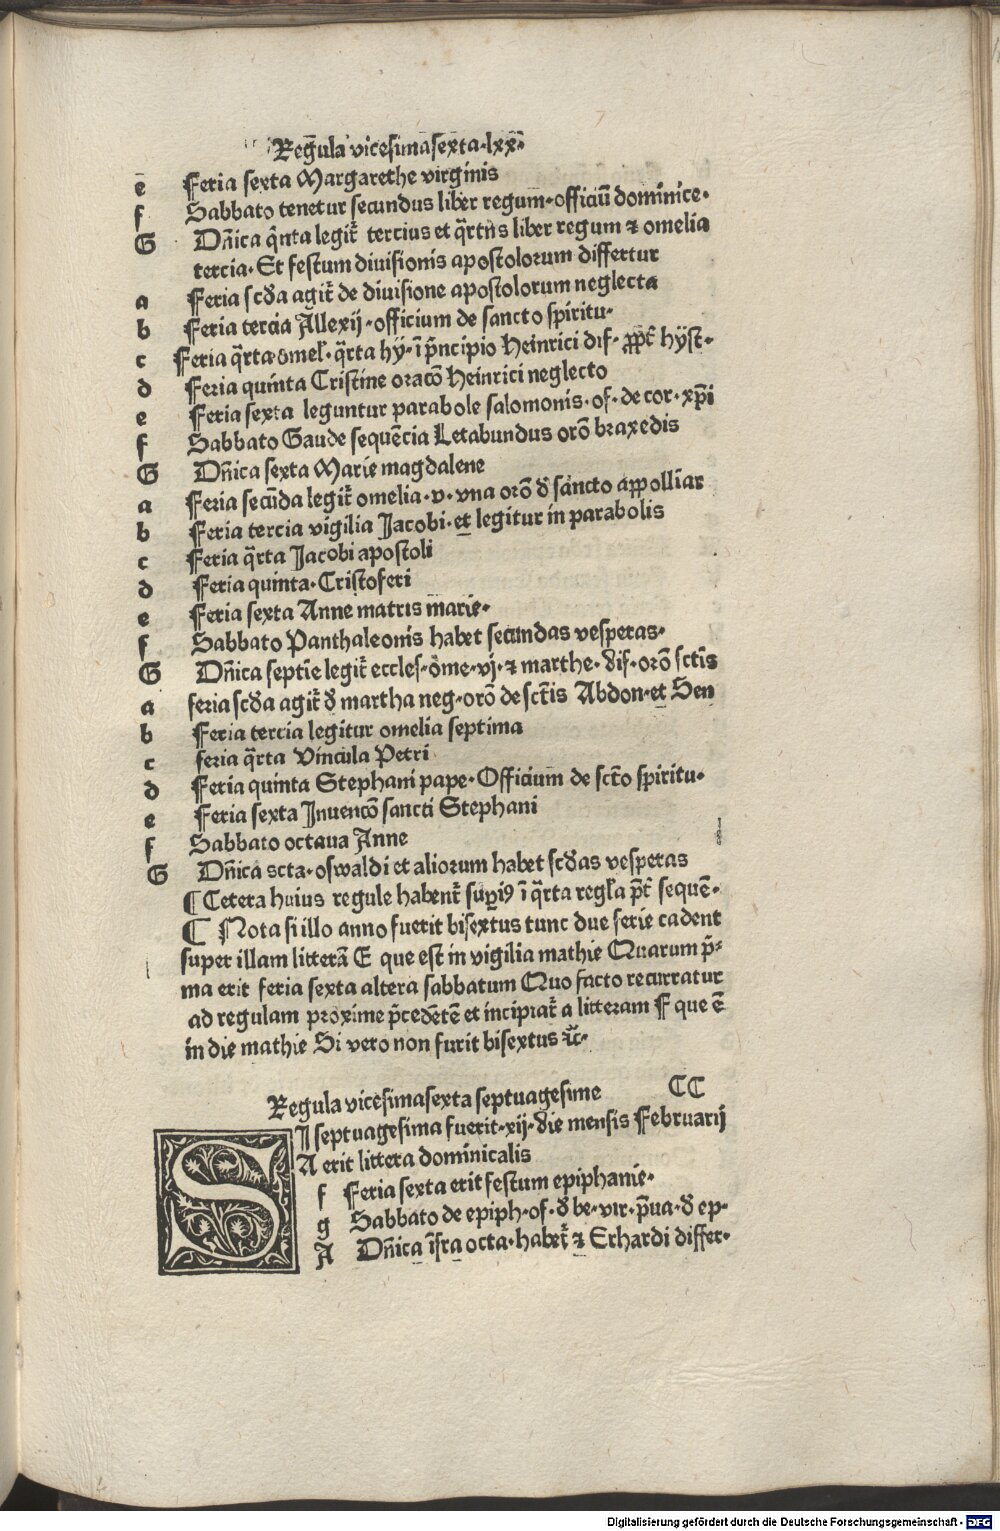 Regula vicesimasexta·lxx̅
e Feria sexta Margarethe virginis
f Sabbato tenetur secundus liber regum·officiū dominice·
G Dn̄ica q̄nta legit᷑ tercius et q̄rtus liber regum ⁊ omelia
tercia·Et festum diuisionis apostolorum differtur
a Feria scd̄a agit᷑ de diuisione apostolorum neglecta
b Feria tercia Allexij·officium de sancto spiritu·
c Feria q̄rta omel᷑·q̄rta hy·ī p̄ncipio Heinrici dif· hyst·
d Feria quinta Cristine oracō Heinrici neglecto
e Feria sexta leguntur parabole salomonis·of·de cor·xp̄i
f Sabbato Gaude sequēcia Letabundus orō braxedis
G Dn̄ica sexta Marie magdalene
a Feria secūda legit᷑ omelia·v·vna orō d̄ sancto appollīar
b Feria tercia vigilia Jacobi·et legitur in parabolis
c Feria q̄rta Jacobi apostoli
d Feria quinta·Cristoferi
e Feria sexta Anne matris marie·
f Sabbato Panthaleonis habet secundas vesperas·
G Dn̄ica septīe legit᷑ eccles·ōme·vj·⁊ marthe·dif·orō sctīs
a feria scd̄a agit᷑ d̄ martha neg·orō de sct̄is Abdon·et Sen
b Feria tercia legitur omelia septima
c feria q̄rta Vincula Petri
d Feria quinta Stephani pape·Officium de sct̄o spiritu·
e Feria sexta Inuencō sancti Stephani
f Sabbato octaua Anne
G Dn̄ica scta·oswaldi et aliorum habet scd̄as vesperas
¶ Cetera huius regule habent᷑ supiꝰ ī q̄rta regl̄a p̄t᷑ sequē·
¶ Nota si illo anno fuerit bisextus tunc due ferie cadent
super illam litterā E que est in vigilia mathie Quarum p̄·
ma erit feria sexta altera sabbatum Quo facto recurratur
ad regulam proxime p̄cedētē et incipiat᷑ a litteram F que ē
in die mathie Si vero non furit bisextus ⁊c̄·
Regula vicesimasexta septuagesime CC
SI septuagesima fuerit·xij·die mensis Februarij
A erit littera dominicalis
f Feria sexta erit festum epiphanie·
g Sabbato de epiph·of·d̄ be·vir·p̄ua·d̄ ep·
A Dn̄ica īfra octa·habet᷑ ⁊ Erhardi differ·
Digitalisierung gefördert durch die Deutsche Forschungsgemeinschaft - DFG